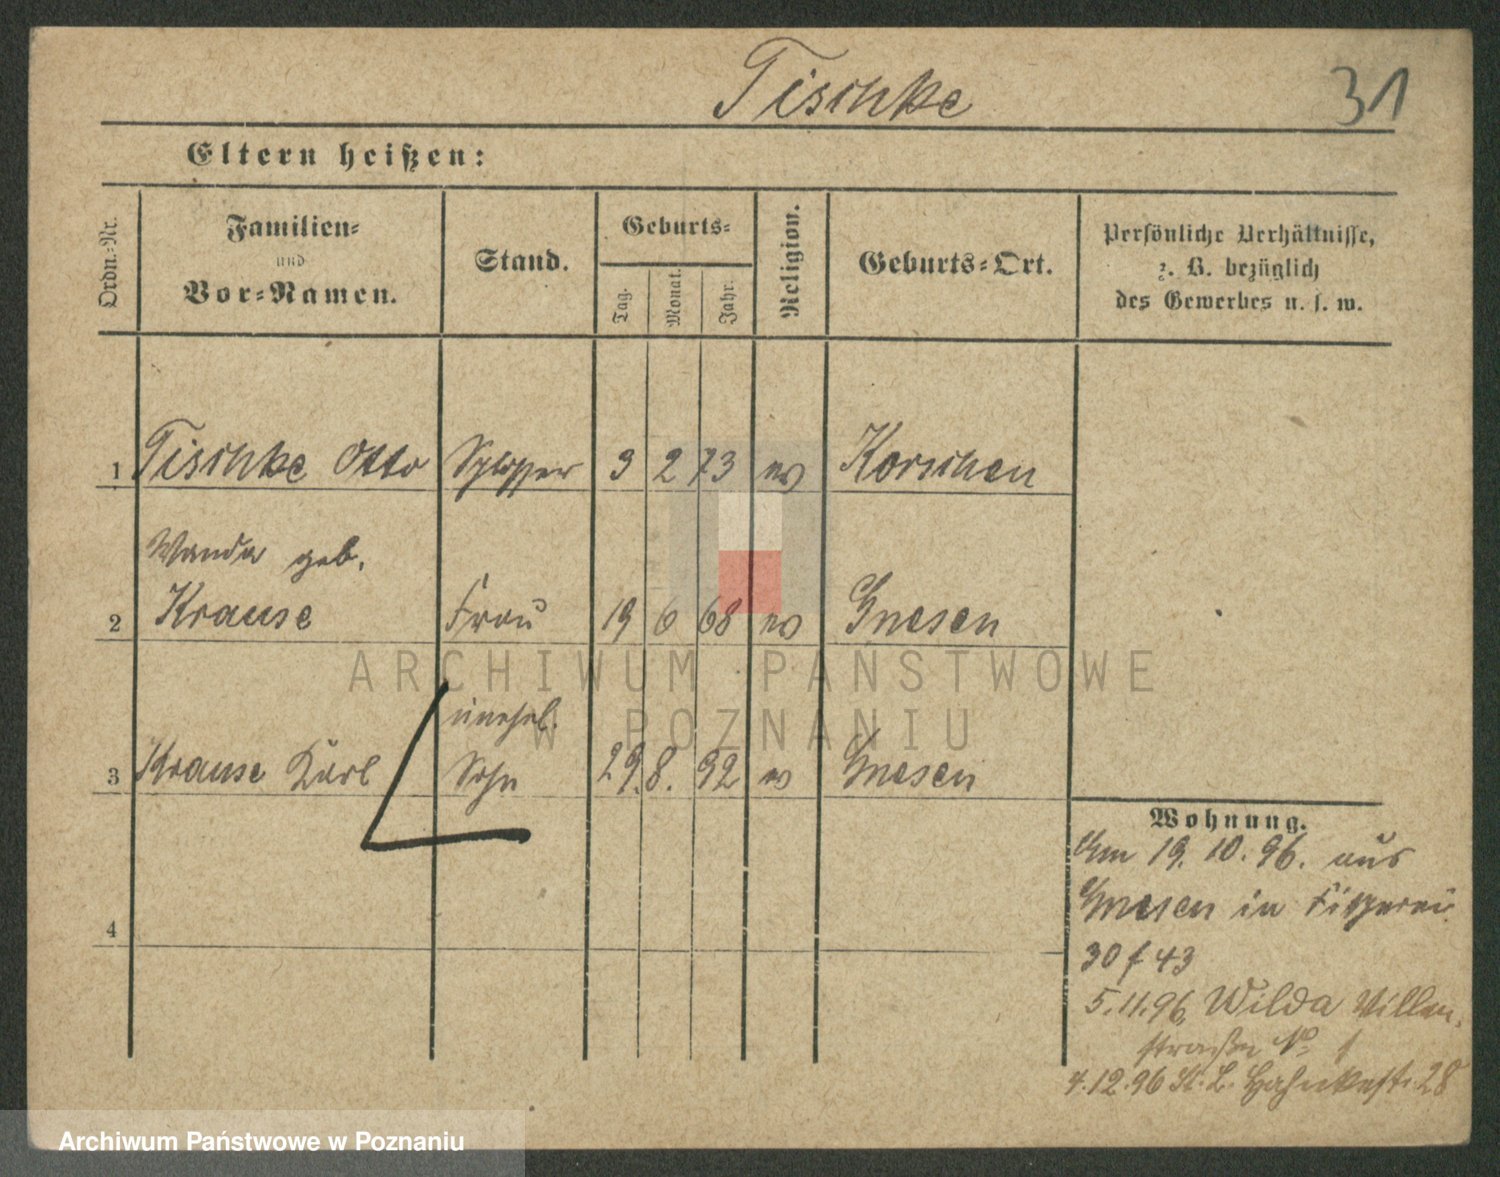 Tischke 31
Eltern heißen:
Ordn.-Nr.
Familien-
und
Vor-Namen.
Stand.
Geburts-
Tag. Monat. Jahr.
Religion.
Geburts-Ort.
Persönliche Verhältnisse,
z. B. bezüglich
des Gewerbes u. s. w.
1 Tischke Otto Schlosser 3 2 73 ev Korschen
Wanda geb.
2 Krause Frau 19 6 68 ev Gnesen
unehel.
3 Krause Karl Sohn 29. 8. 92 ev Gnesen
4
Wohnung.
Am 19. 10. 96. aus
Gnesen in Fischerei
30 f 43
5. 11. 96. Wilda Villen-
straße No 1
4. 12. 96 St. L. 28
ARCHIWUM PAŃSTWOWE
W POZNANIU
Archiwum Państwowe w Poznaniu